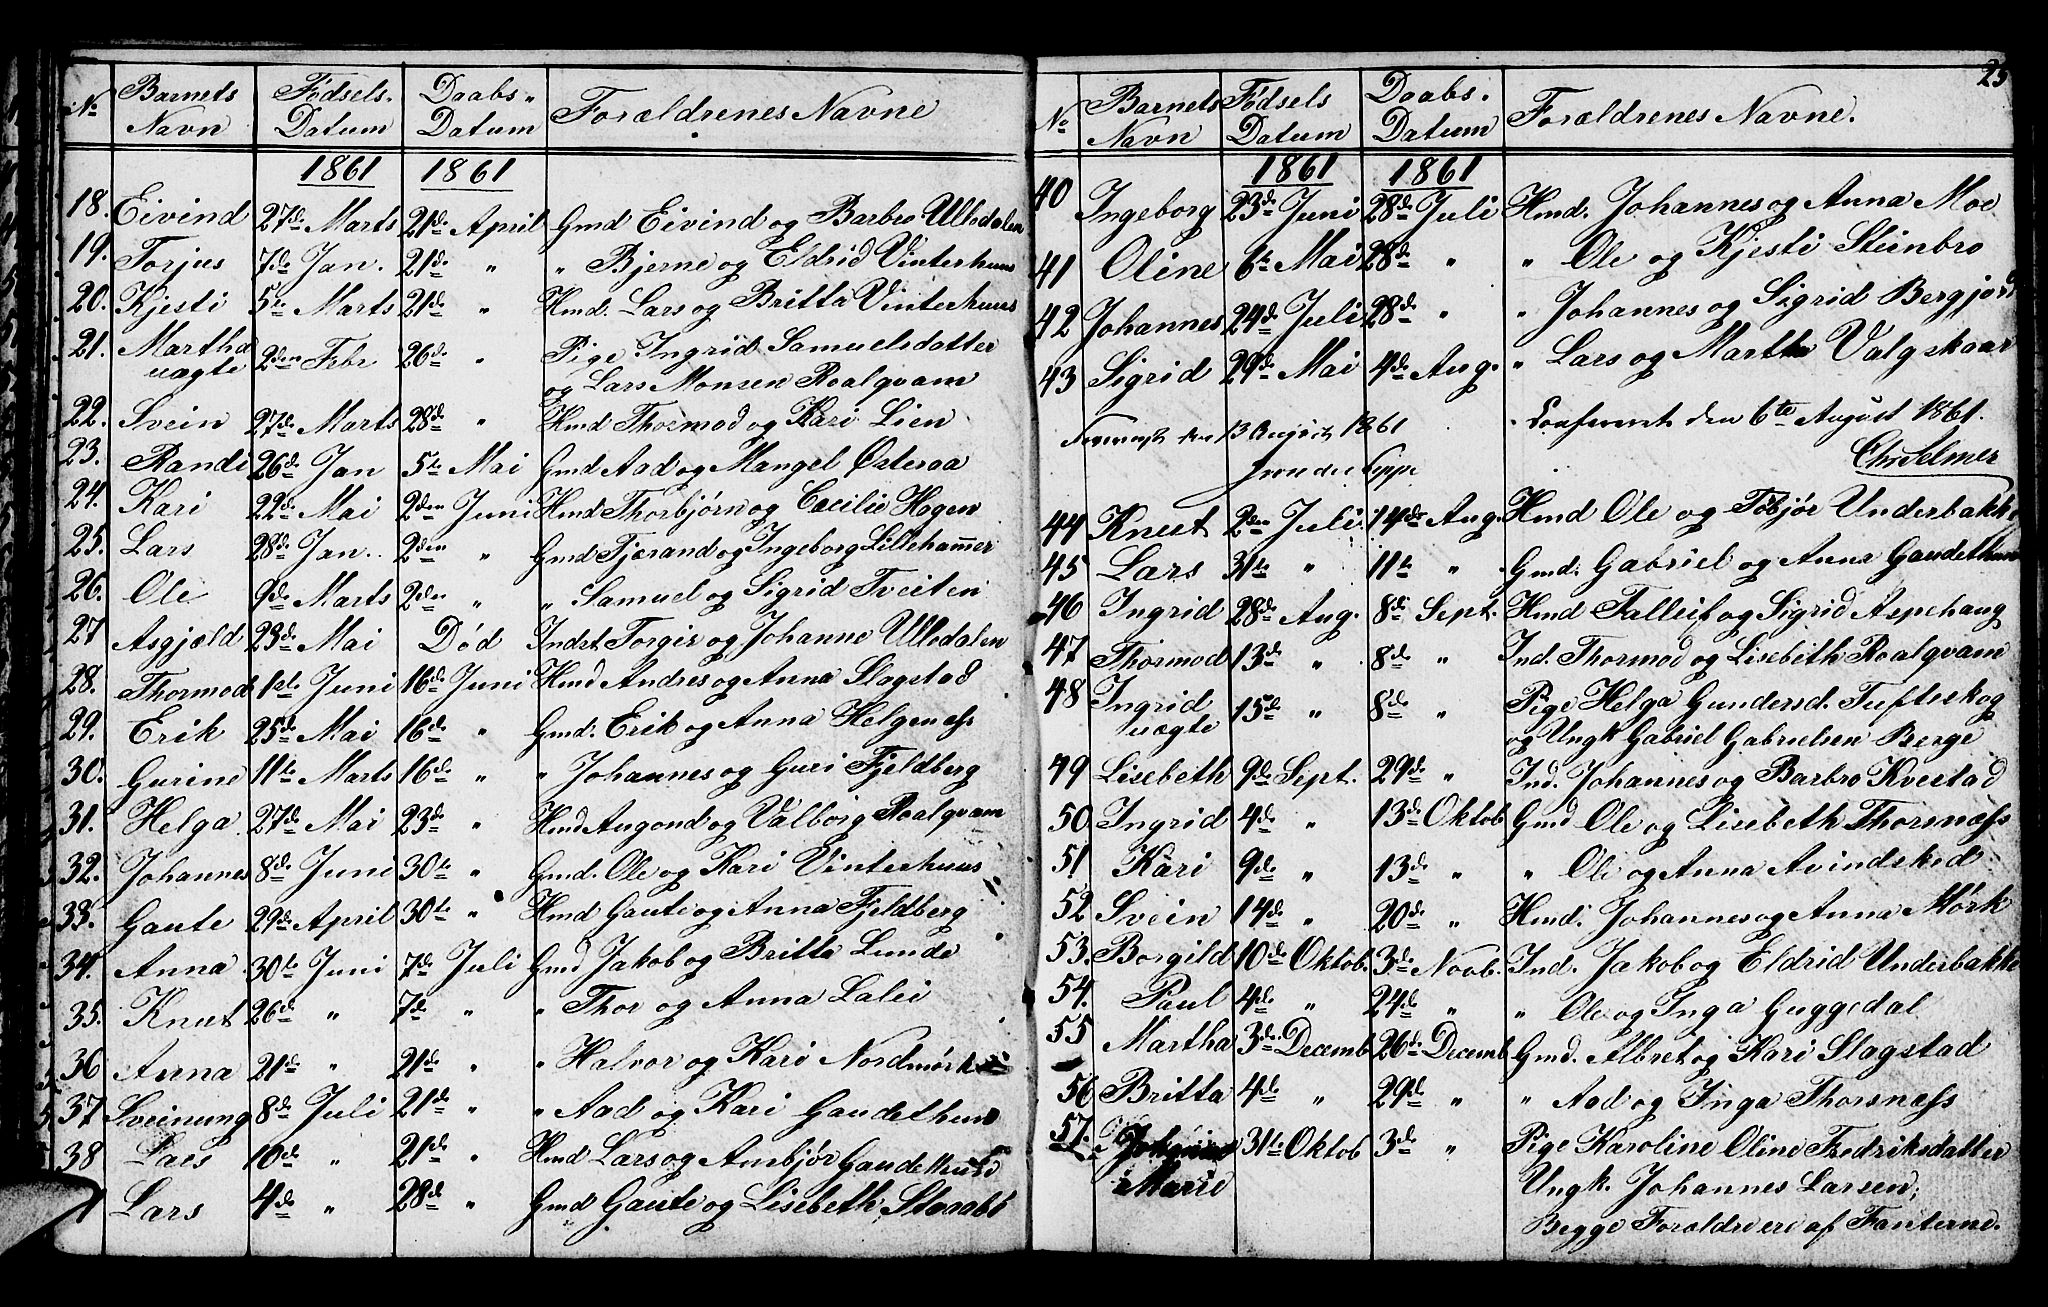 No Barnets Navn Fødsels. Datum Daabs Datum Forældrenes Navne
1861 1861
18. Eivind 27de Marts 21de April Gmd Eivind og Barbro Ulledalen
19. Torjus 7de Jan. 21de " " Bjerne og Eldrid Vinterhuus
20. Kjesti 5te Marts 21de " Hmd. Lars og Britta Vinterhuus
21. Martha uægte 2den Febr 26de " Pige Ingrid Samuelsdatter
og Lars Monsen Roalqvam
22. Svein 27de Marts 28de " Hmd Thormod og Kari Lien
23. Randi 26de Jan 5te Mai Gmd Aad og Mangel Østeraa
24. Kari 22de Mai 2den Juni Hmd Thorbjørn og Cæcilie Hagen
25. Lars 28de Jan. 2den " Gmd Tjerand og Ingeborg Lillehammer
26. Ole 9de Marts 2den " " Samuel og Sigrid Tveiten
27 Asgjæld 23de Mai Død Indst Torgis og Johanne Ulledalen
28. Thormod 1ste Juni 16de Juni Hmd Andres og Anna Slagstad
29. Erik 25de Mai 16de " Gmd. Erik og Anna Helgenæss
30. Gurine 11te Marts 16de " " Johannes og Guri Fjeldberg
31. Helga 27de Mai 23de " Hmd Augond og Valborg Roalqvam
32. Johannes 8de Juni 30te " Gmd. Ole og Kari Vinterhuus
33. Gaute 29de April 30te " Hmd Gaute og Anna Fjeldberg
34. Anna 30te Juni 7de Juli Gmd Jakob og Britta Lunde
35. Knut 26de " 7de " " Thor og Anna Lalei
36 Anna 21de " 21de " " Halvor og Kari Nordmørk
37 Sveinung 8de Juli 21de " " Aad og Kari Gaudethuus
38 Lars 10de " 21de " Hmd Lars og Ambjør Gaudethuus
Lars 4de " 28de " Gmd Gaute og Lisebeth Storabø
25
No Barnets Navn Fødsels Datum Daabs. Datum Forældrenes Navne.
1861 1861
40 Ingeborg 23de Juni 28de Juli Hmd. Johannes og Anna Moe
41 Oline 6te Mai 28de " " Ole og Kjesti Steinbro
42 Johannes 24de Juli 28de " " Johannes og Sigrid Bergjord
43 Sigrid 29de Mai 4de Aug. " Lars og Martha Valgskaar
Confereret den 6te August 1861.
13 August 1861
Chr Selmer
44 Knut 2den Juli. 14de Aug. Hmd Ole og Tobjør Underbakke
45 Lars 31te " 11te " Gmd. Gabriel og Anna Gaudethuus
46 Ingrid 28de Aug. 8de Sept. Hmd Talleif og Sigrid Aspehaug
47 Thormod 13de " 8de " Ind. Thormod og Lisebeth Roalqvam
48 Ingrid uægte 15de " 8de " Pige Helga Gundersd. Tufteskog
og Ungk Gabriel Gabrielsen Berge
49 Lisebeth 9de Sept. 29de " Ind. Johannes og Barbro Kvestad
50 Ingrid 4de " 13de Oktob Gmd Ole og Lisebeth Thorsnæss
51 Kari 9de " 13de " " Ole og Anna Avindsked
52 Svein 14de " 20de " Hmd. Johannes og Anna Mørk
53. Borgild 10de Oktob. 3de Novb. Ind. Jakob og Eldrid Underbakke
54. Paul 4de " 24de " " Ole og Inga Guggedal
55 Martha 3de Decemb 26de Decemb Gmd. Albret og Kari Slagstad
56 Britta 4de " 29de " " Aad og Inga Thorsnæss
57. Marie 31te Oktob 3de " Pige Karoline Oline Fredriksdatter
Ungk. Johannes Larsen;
Begge Foraldre ere af Fanterne.